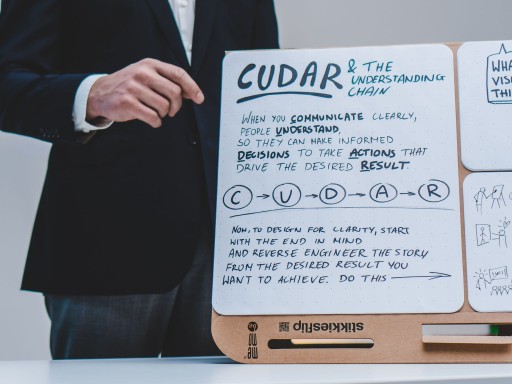 CUDAR & THE
UNDERSTANDING
CHAIN
WHEN YOU COMMUNICATE CLEARLY,
PEOPLE UNDERSTAND,
SO THEY CAN MAKE INFORMED
DECISIONS TO TAKE ACTIONS THAT
DRIVE THE DESIRED RESULT.
C → U → D → A → R
NOW, TO DESIGN FOR CLARITY, START
WITH THE END IN MIND
AND REVERSE ENGINEER THE STORY
FROM THE DESIRED RESULT YOU
WANT TO ACHIEVE. DO THIS →
WHA
VIS
THI
stickiesflip
me